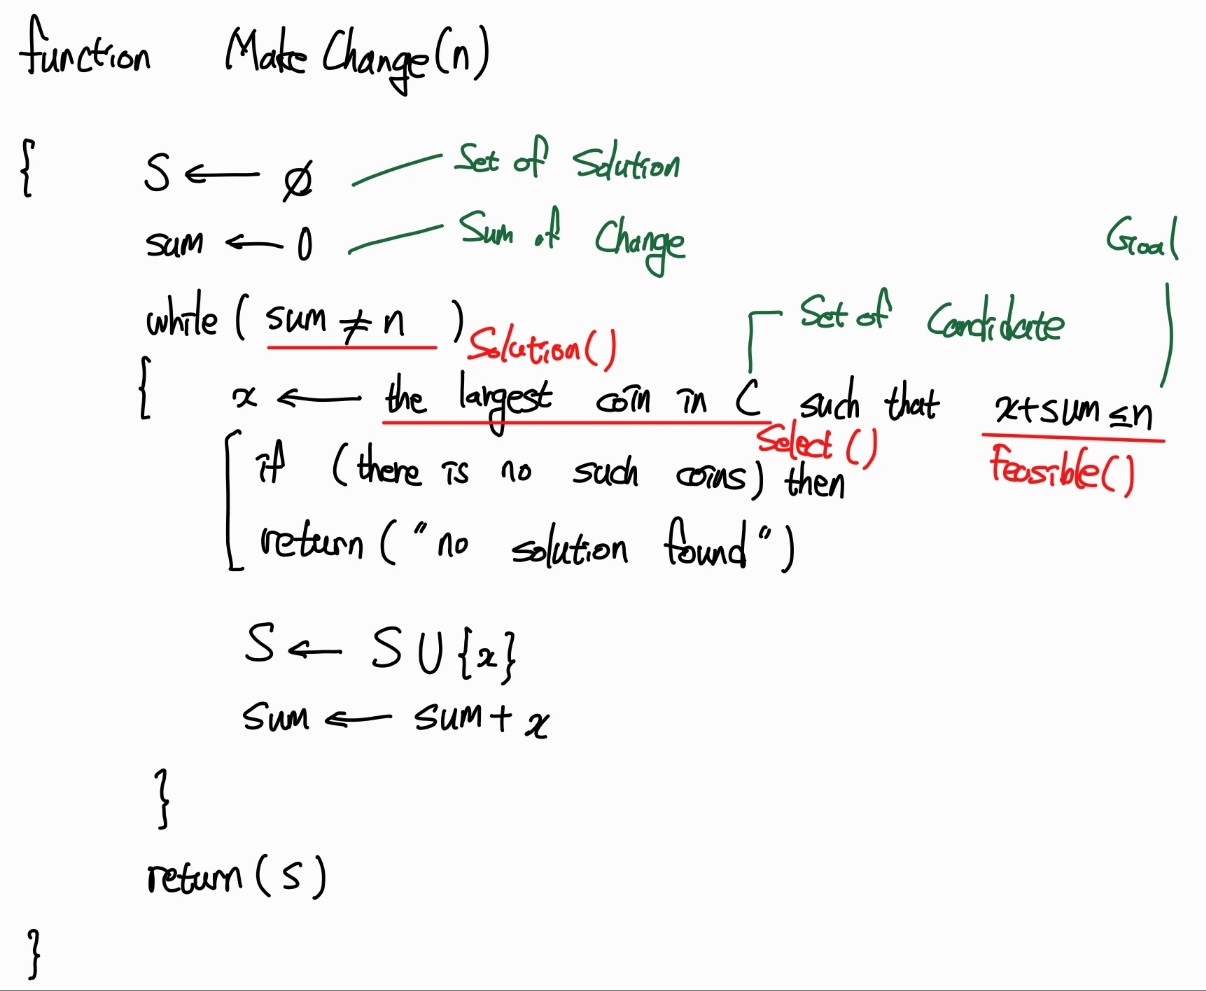 function Make Change(n)
{ S ← ∅ Set of Solution
sum ← 0 Sum of Change
Goal
while ( sum ≠ n ) Solution()
Set of Candidate
{ x ← the largest coin in C such that x+sum ≤ n
Select () Feasible()
if (there is no such coins) then
return ( "no solution found" )
S ← S ∪ {x}
sum ← sum + x
}
return ( S )
}